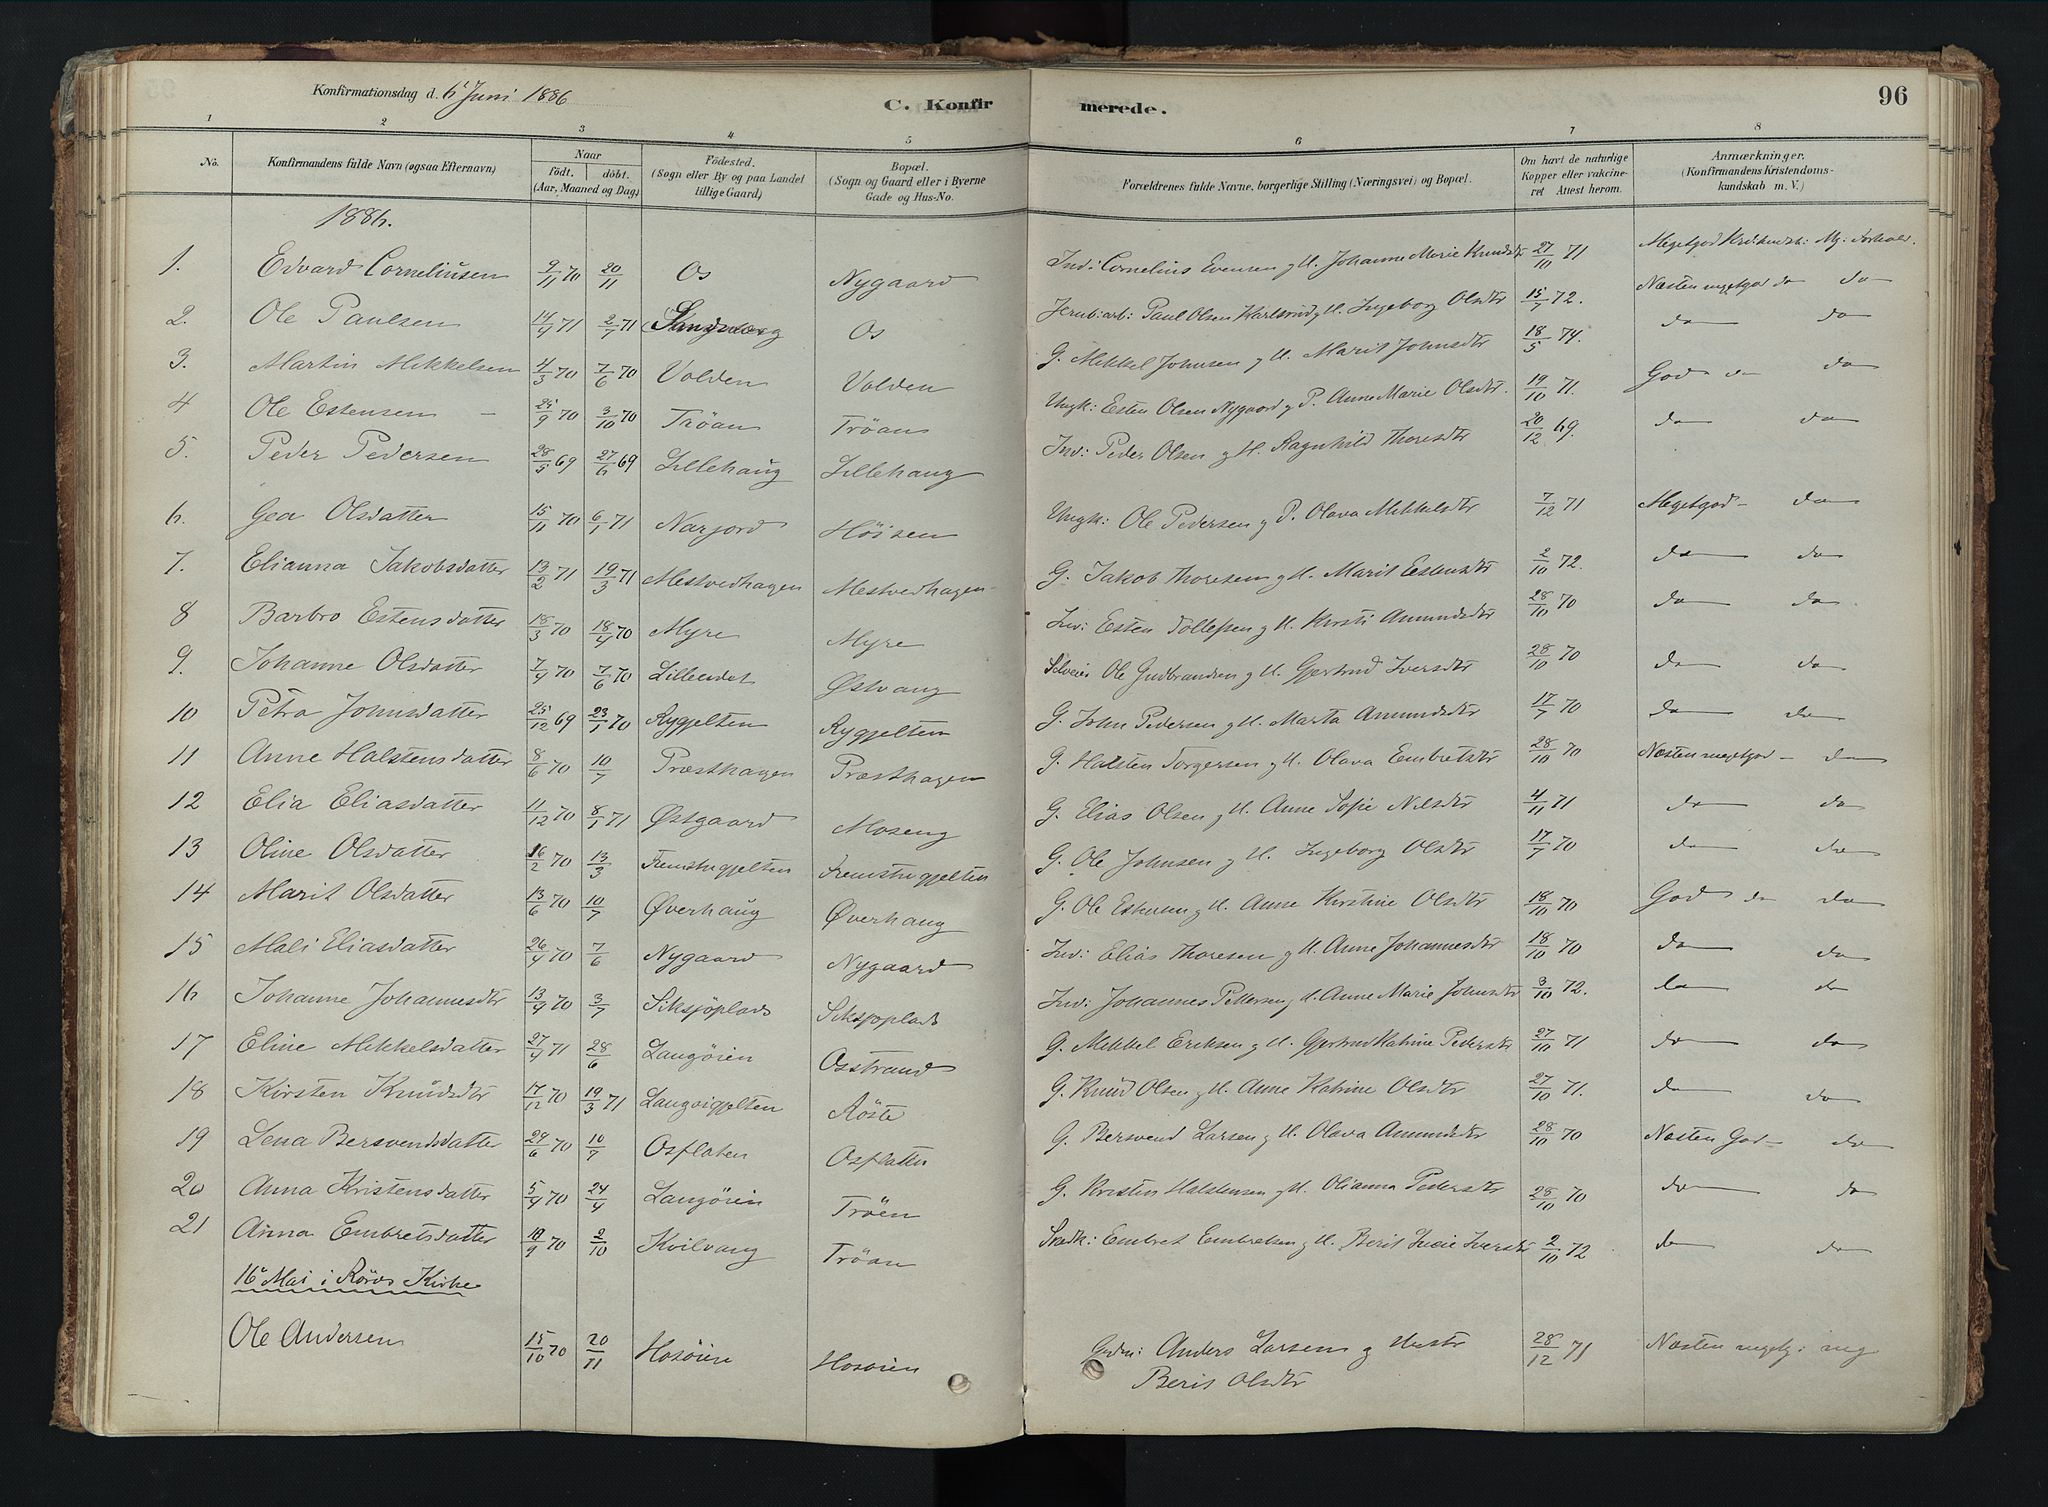 Konfirmationsdag d. 6 Juni 1886 C. Konfirmerede. 96
1 2 3 4 5 6 7 8
No. Konfirmandens fulde Navn (ogsaa Efternavn) Naar født. døbt. (Aar, Maaned og Dag) Fødested. (Sogn eller By og paa Landet tillige Gaard) Bopæl. (Sogn og Gaard eller i Byerne Gade og Hus-No. Forældrenes fulde Navne, borgerlige Stilling (Næringsvei) og Bopæl. Om havt de naturlige Kopper eller vakcineret Attest herom. Anmærkninger. (Konfirmandens Kristendomskundskab m. V.)
1886.
1. Edvard Corneliusen 9/11 70 20/11 Os Nygaard Ind: Cornelius Evensen g H. Johanne Marie Knudsdtr 27/10 71 Megetgod Mg: Forhold.
2. Ole Paulsen 14/4 71 2/7 71 Os Jernb: arb: Paul Olsen Karlsrud g H. Ingeborg Olsdtr 15/7 72. Næsten megetgod do do
3. Martin Mikkelsen 4/3 70 7/6 70 Volden Volden G. Mikkel Johnsen g H. Marit Johnsdtr 18/5 74. do do
4 Ole Estensen 25/9 70 3/10 70 Trøan Trøan Ungk: Esten Olsen Nygaard g P. Anne Marie Olsdtr. 19/10 71. God do do
5. Peder Pedersen 28/5 69 27/6 69 Lillehaug Lillehaug Ind: Peder Olsen g H. Ragnhild Thoresdtr 20/12 69. do do
6. Gea Olsdatter 15/11 70 6/1 71 Narjord Høisen Ungk: Ole Pedersen g P. Olava Mikkelsdtr 7/12 71 Megetgod do
7. Elianna Jakobsdatter 13/2 71 19/3 71 Mestvedhagen Mestvedhagen G. Jakob Thoresen g H. Marit Estensdtr 2/10 72. do do
8 Barbro Estensdatter 18/3 70 18/4 70 Myre Myre Ind: Esten Tollefsen g H. Kirsti Amundsdtr 28/10 70 do do
9. Johanne Olsdatter 7/4 70 7/6 70 Østvang Selveier Ole Gudbrandsen g H. Gjertrud Iversdtr 28/10 70 do do
10 Petra Johnsdatter 25/12 69 23/1 70 Rygjelten Rygjelten G. John Pedersen g H. Marta Amundsdtr 17/7 70 do do
11 Anne Halstensdatter 8/6 70 10/7 Præsthagen Præsthagen G. Halsten Torgersen g H. Olava Embretsdtr 28/10 70 Næsten megetgod do
12 Elia Eliasdatter 11/12 70 8/1 71 Østgaard Moseng G. Elias Olsen g H. Anne Sofie Nilsdtr 4/11 71 do do
13 Oline Olsdatter 16/2 70 13/3 Fremstugjelten Fremstugjelten G. Ole Johnsen g H. Ingeborg Olsdtr 17/7 70 do do
14 Marit Olsdatter 13/6 70 10/7 Øverhaug Øverhaug G. Ole Estensen g H. Anne Kirstine Olsdtr 18/10 70 God do do
15 Mali Eliasdatter 26/4 70 7/6 Nygaard Nygaard Ind: Elias Thoresen g H. Anne Johannesdtr 18/10 70 do do
16 Johanne Johannesdtr 13/4 70 3/7 Siksjøplads Siksjøplads Ind: Johannes Pettersen g H. Anne Marie Johnsdtr 3/10 72. do do
17 Eline Mikkelsdatter 27/4 71 28/6 Langøien Osstrand G. Mikkel Eriksen g H. Gjertrud Katrine Pedersdtr 27/10 71 do do
18 Kirsten Knudsdtr 17/12 70 19/3 71 Langvigjelten Røste G. Knud Olsen g H. Anne Katrine Olsdtr 27/10 71. do do
19 Lena Bersvendsdatter 24/6 70 10/7 Osflaten Osflatten G. Bersvend Larsen g H. Olava Amundsdtr 28/10 70 Næsten God do
20 Anna Kristensdatter 5/4 70 24/4 Langøien Trøen G. Kristen Halstensen g H. Olianna Pedersdtr 28/10 70 do do
21 Anna Embretsdatter 10/9 70 2/10 Kvilvang Trøan Embret Embretsen g H. Berit Iversdtr 2/10 72 do do
16 Mai i Røros Kirke
Ole Andersen 15/10 70 20/11 Hosøien Hosøien Anders Larsen g Hustr 28/12 71 Næsten megetg: mg
Berit Olsdtr